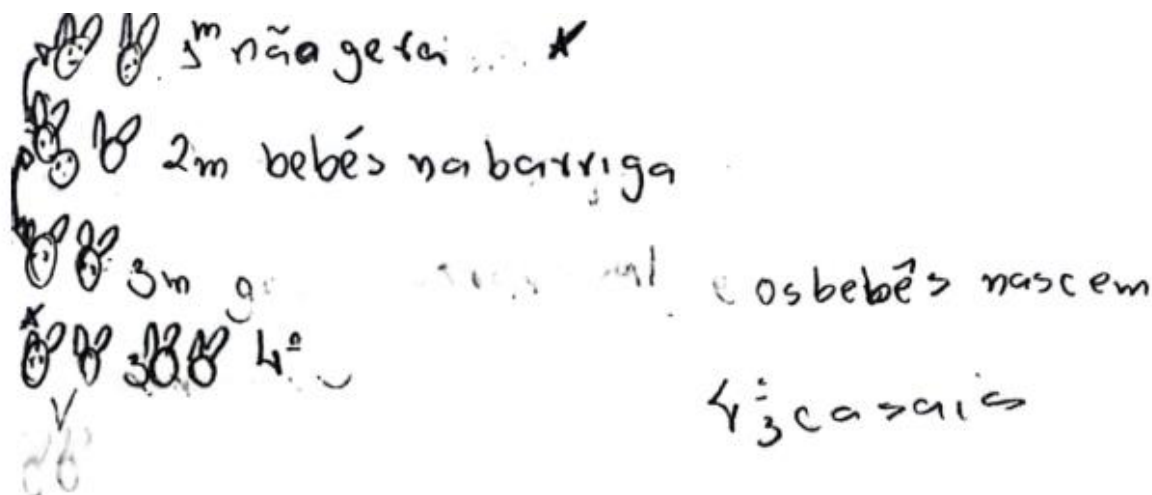 1m não gera
2m bebés na barriga
3m g os bebês nascem
3 4º
4º 3 casais